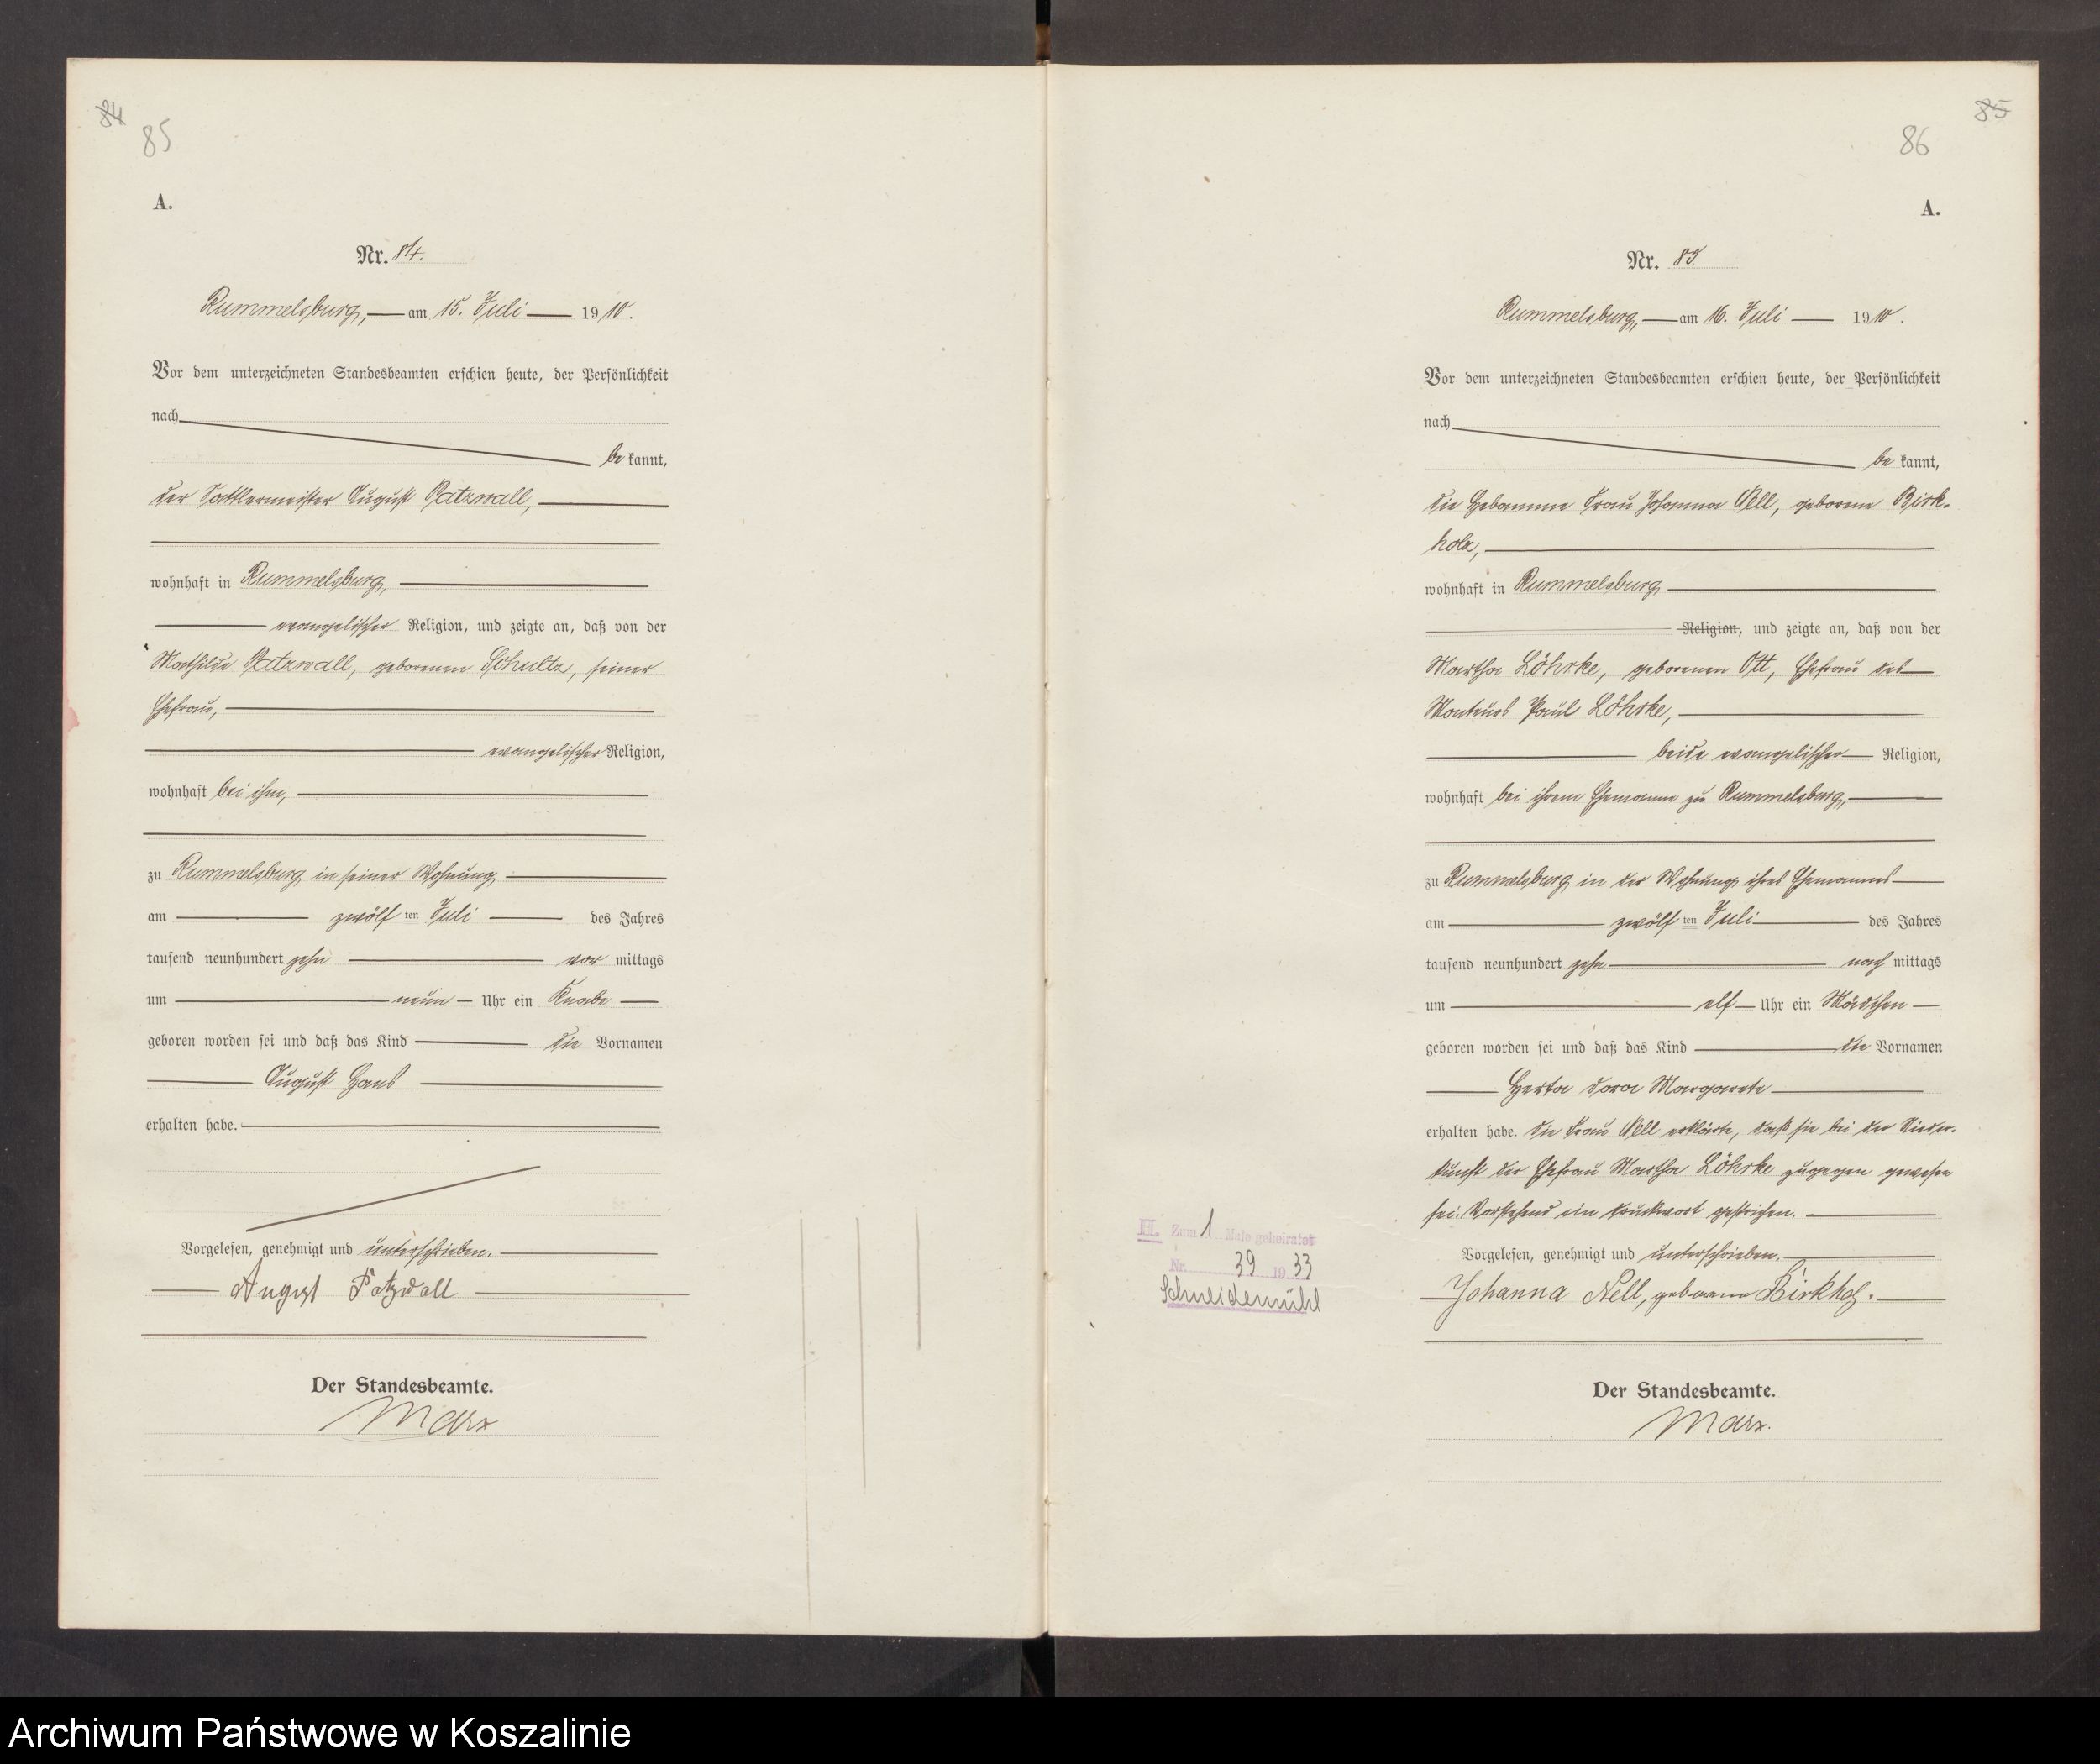 84
85
A.
Nr. 84.
Rummelsburg, am 15. Juli 1910.
Vor dem unterzeichneten Standesbeamten erschien heute, der Persönlichkeit
nach
be kannt,
der Sattlermeister August Patzwall,
wohnhaft in Rummelsburg,
evangelischer Religion, und zeigte an, daß von der
Mathilde Patzwall, geborenen Schultz, seiner
Ehefrau,
evangelischer Religion,
wohnhaft bei ihm,
zu Rummelsburg in seiner Wohnung
am zwölf ten Juli des Jahres
tausend neunhundert zehn vor mittags
um neun Uhr ein Knabe
geboren worden sei und daß das Kind die Vornamen
August Hans
erhalten habe.
Vorgelesen, genehmigt und unterschrieben.
August Patzwall
Der Standesbeamte.
Marx
85
86
A.
Nr. 85.
Rummelsburg, am 16. Juli 1910.
Vor dem unterzeichneten Standesbeamten erschien heute, der Persönlichkeit
nach
be kannt,
die Hebamme Frau Johanna Nell, geborene Birk-
holz,
wohnhaft in Rummelsburg
Religion, und zeigte an, daß von der
Martha Löhrke, geborenen Ott, Ehefrau des
Monteurs Paul Löhrke,
beide evangelischer Religion,
wohnhaft bei ihrem Ehemanne zu Rummelsburg,
zu Rummelsburg in der Wohnung ihres Ehemannes
am zwölf ten Juli des Jahres
tausend neunhundert zehn nach mittags
um elf Uhr ein Mädchen
geboren worden sei und daß das Kind die Vornamen
Herta Dora Margarete
erhalten habe. Die Frau Nell erklärte, daß sie bei der Nieder-
kunft der Ehefrau Martha Löhrke zugegen gewesen
sei. Vorstehend ein Druckwort gestrichen.
Vorgelesen, genehmigt und unterschrieben.
Johanna Nell, geborene Birkholz.
Der Standesbeamte.
Marx.
H. Zum 1 Male geheiratet
Nr. 39 1933
Schneidemühl
Archiwum Państwowe w Koszalinie